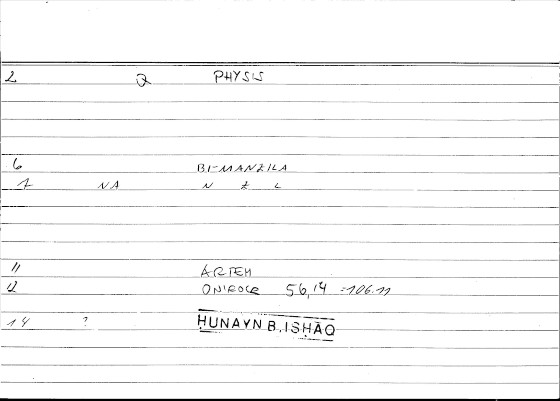 2 Q PHYSIS
6 BI-MANZILA
7 NA N Z L
11 ARTEM
12 ONIROCR 56,14 =106.11
14 ? ḤUNAYN B. ISḤĀQ